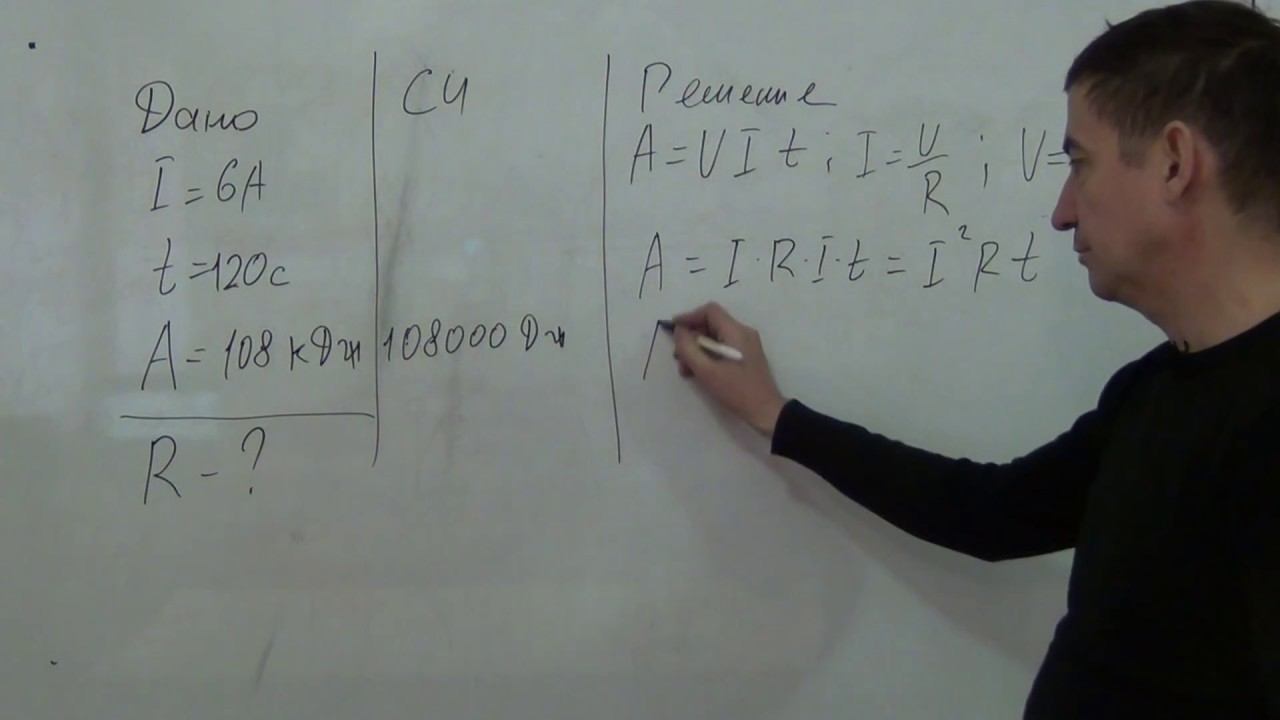 Дано
I = 6A
t = 120c
A = 108 кДж
R - ?
СИ
108000 Дж
Решение
A = U I t ; I = U/R ; U =
A = I · R · I · t = I² R t